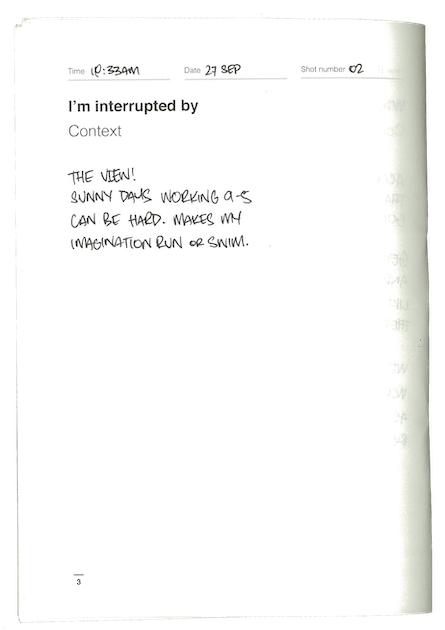 Time 10:33AM Date 27 SEP Shot number 02
I'm interrupted by
Context
THE VIEW!
SUNNY DAYS WORKING 9-5
CAN BE HARD. MAKES MY
IMAGINATION RUN OR SWIM.
3